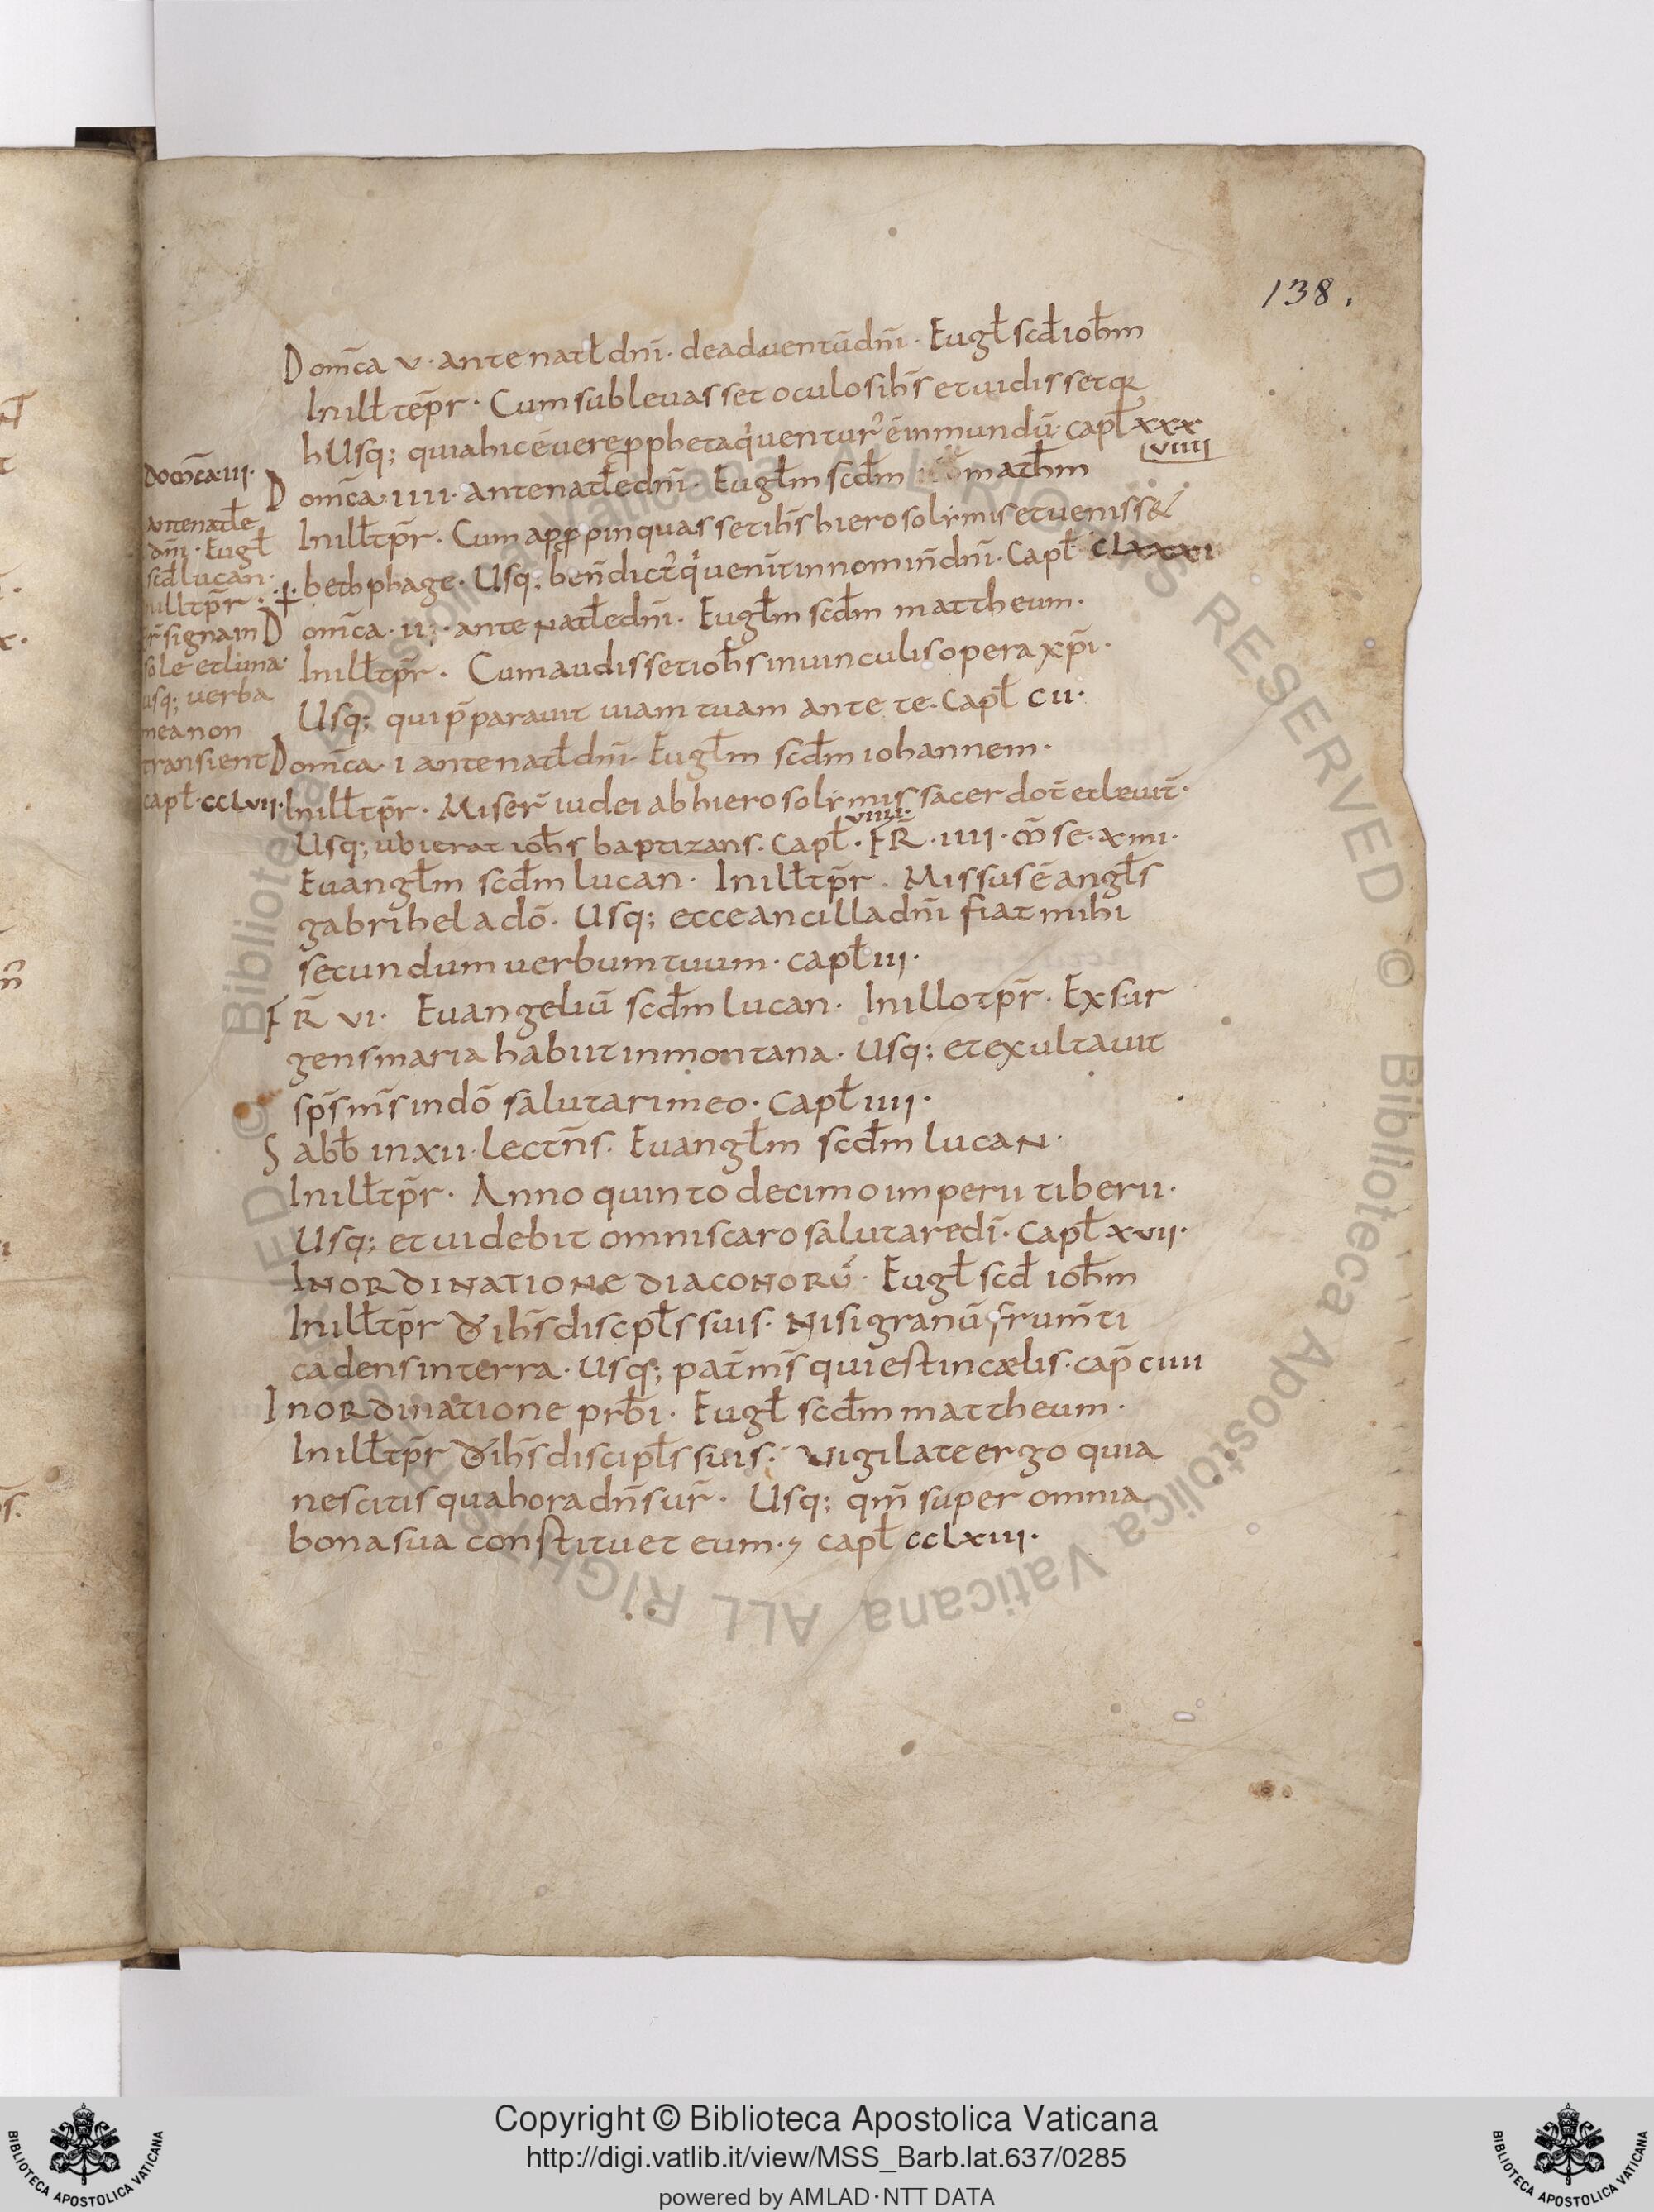 138.
Dom̄ca v· ante natł dn̄i· deaduentūdn̄i· Eugł scđ ioħm
Iniłł tēpr· Cum subleuasset oculos ih̄s et uidisset q̄
h Usq; quia hic ē uere ꝓpheta q̇ uenturꝰ ē in mundū· capł xxx
viiii
Dom̄ca·iiii· ante natłe dn̄i· Eugłm scđm matħm
Iniłł tp̄r· Cum appropinquasset ih̄s hierosolymis et uenisset
bethphage· Usq; ben̄dictꝰ q̇ uenit in nomin̄ dn̄i· Capł clxxxi
Dom̄ca·ii·ante natłe dn̄i· Eugłm scđm mattheum·
Iniłł tp̄r· Cum audisset ioħs in uinculis opera xp̄i·
Usq; qui p̄parauit uiam tuam ante te· Capł cii·
Dom̄ca· i ante natł dn̄i· Eugłm scđm iohannem·
Iniłł tp̄r· Miser̄ iudei ab hierosolymis sacerdot̄ et leuit̄·
viiii·
Usq; ubi erat ioħs baptizans· Capł· FR̄·iiii·m̄se·x mi·
Euangłm scđm lucan· Iniłł tp̄r· Missus ē angłs
gabrihel a dō· Usq; ecce ancilla dn̄i fiat mihi
secundum uerbum tuum· capł iii·
FR̄ vi· Euangeliū scđm lucan· Inillo tp̄r· Exsur
gens maria habiit in montana· Usq; et exultauit
sp̄s m̄s in dō salutari meo· Capł iiii·
Sabb̄ in xii· lectn̄s· Euangłm scđm lucan·
Iniłł tp̄r· Anno quinto decimo imperii tiberii·
Usq; et uidebit omnis caro salutare dī· Capł xvii·
In ordinatione diaconorū· Eugł scđ ioħm
Iniłł tp̄r đ ih̄s discipłs suis· Nisi granū frum̄ti
cadens in terra· Usq; pat̄ m̄s qui est in cælis· cap̄ ciiii
In ordinatione prb̄i· Eugł scđm mattheum·
Iniłł tp̄r đ ih̄s discipłs suis· Uigilate ergo quia
nescitis qua hora dn̄s ur̄· Usq; qm̄ super omnia
bona sua constituet eum· capł cclxiii·
Dom̄ca·iii·
ante natłe
dn̄i· Eugł
scđ lucan·
iłł tp̄r·
r̄ signa in
sole et luna·
usq; uerba
mea non
transient
capł·cclvii·
Copyright © Biblioteca Apostolica Vaticana
http://digi.vatlib.it/view/MSS_Barb.lat.637/0285
powered by AMLAD·NTT DATA
BIBLIOTECA APOSTOLICA VATICANA
BIBLIOTECA APOSTOLICA VATICANA